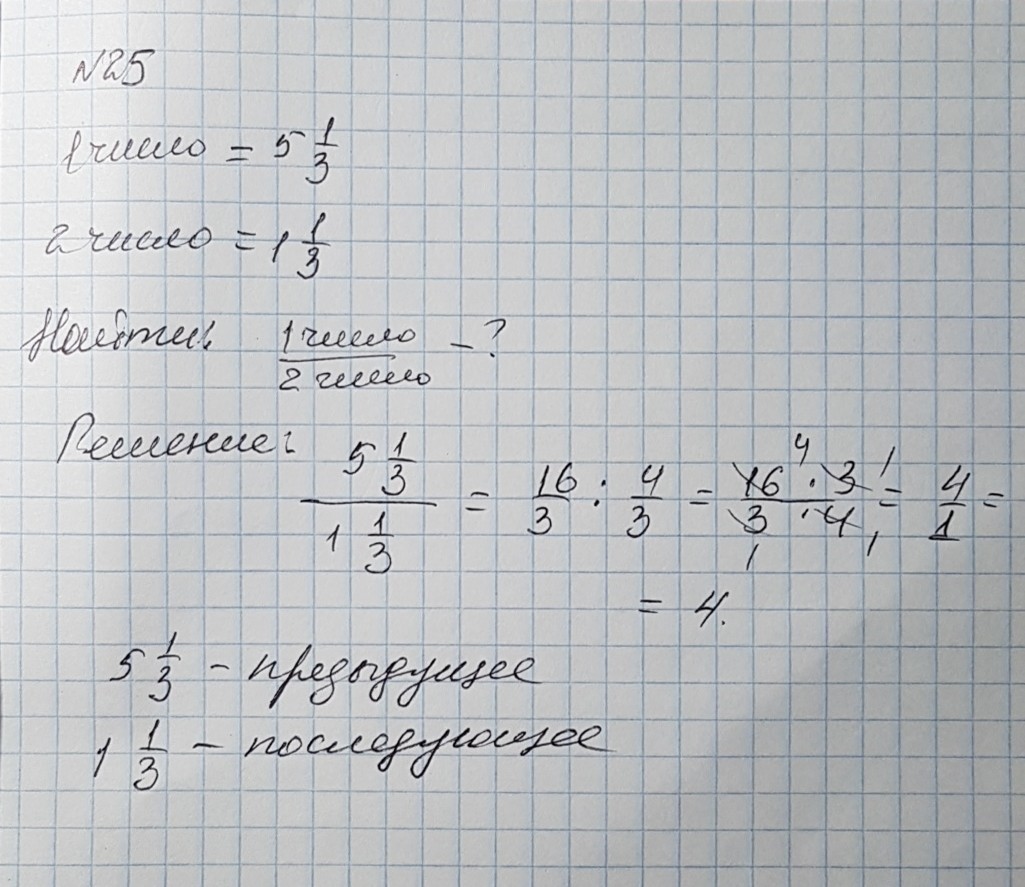 №25
1 число = 5 1/3
2 число = 1 1/3
Найти 1 число/2 число - ?
Решение: 5 1/3 / 1 1/3 = 16/3 : 4/3 = 16 · 3 / 3 · 4 = 4/1 =
= 4.
5 1/3 - предыдущее
1 1/3 - последующее